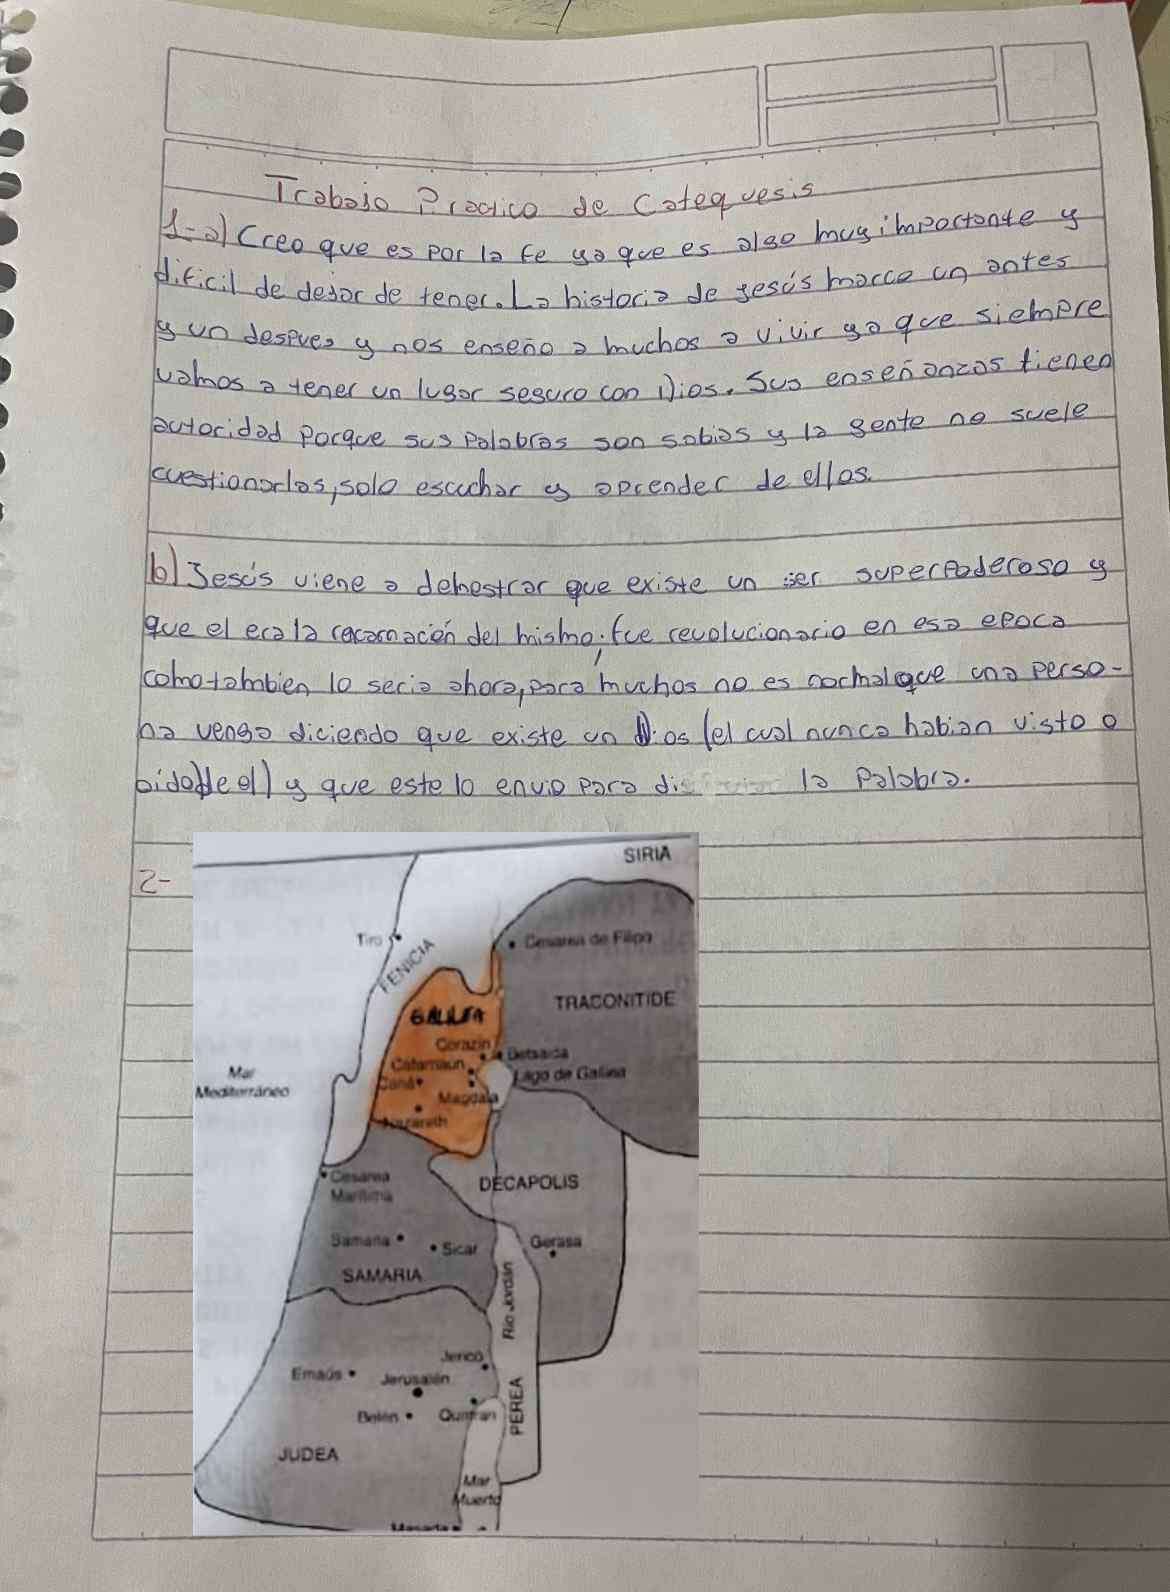 Trabajo Practico de Catequesis
1-a) Creo que es por la fe ya que es algo muy importante y
dificil de dejar de tener. La historia de jesús marco un antes
y un despues y nos enseño a muchos a vivir ya que siempre
vamos a tener un lugar seguro con Dios. Sus enseñanzas tienen
autoridad porque sus palabras son sabias y la gente no suele
cuestionarlas, solo escuchar y aprender de ellas.
b) Jesús viene a demostrar que existe un ser superpoderoso y
que el era la recarnación del mismo, fue revolucionario en esa epoca
como tambien lo seria ahora, para muchos no es normal que una perso-
na venga diciendo que existe un Dios (el cual nunca habian visto o
oido de el) y que este lo envio para la Palabra.
2-
SIRIA
Tiro
FENICIA
Cesarea de Filipo
GALILEA
TRACONITIDE
Corazin
Betsaida
Cafarnaun
Lago de Galilea
Mar
Mediterráneo
Caná
Magdala
Nazareth
Cesarea
Marítima
DECAPOLIS
Samaria
Sicar
Gerasa
SAMARIA
Río Jordán
Jericó
Emaús
Jerusalén
Belén
Qumran
PEREA
JUDEA
Mar
Muerto
Masada